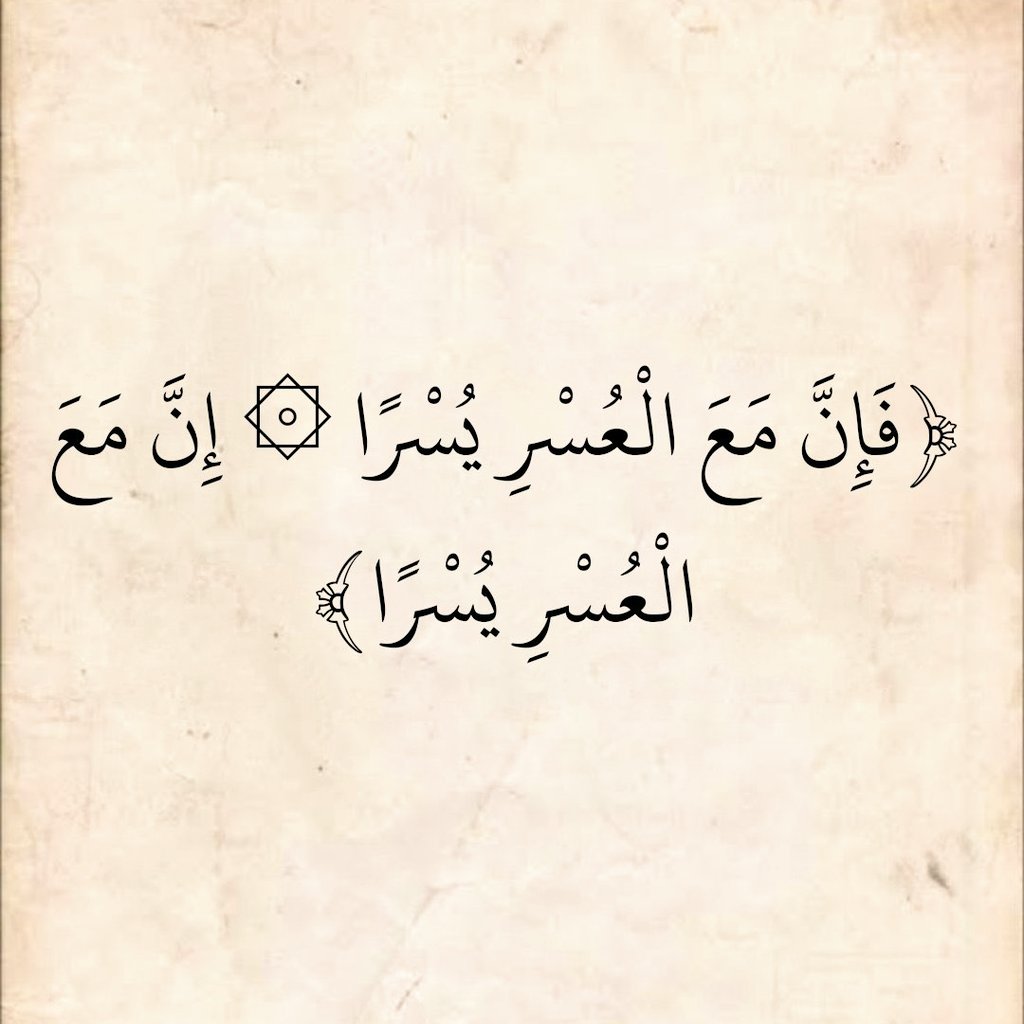 ﴿فَإِنَّ مَعَ الْعُسْرِ يُسْرًا ۞ إِنَّ مَعَ
الْعُسْرِ يُسْرًا﴾